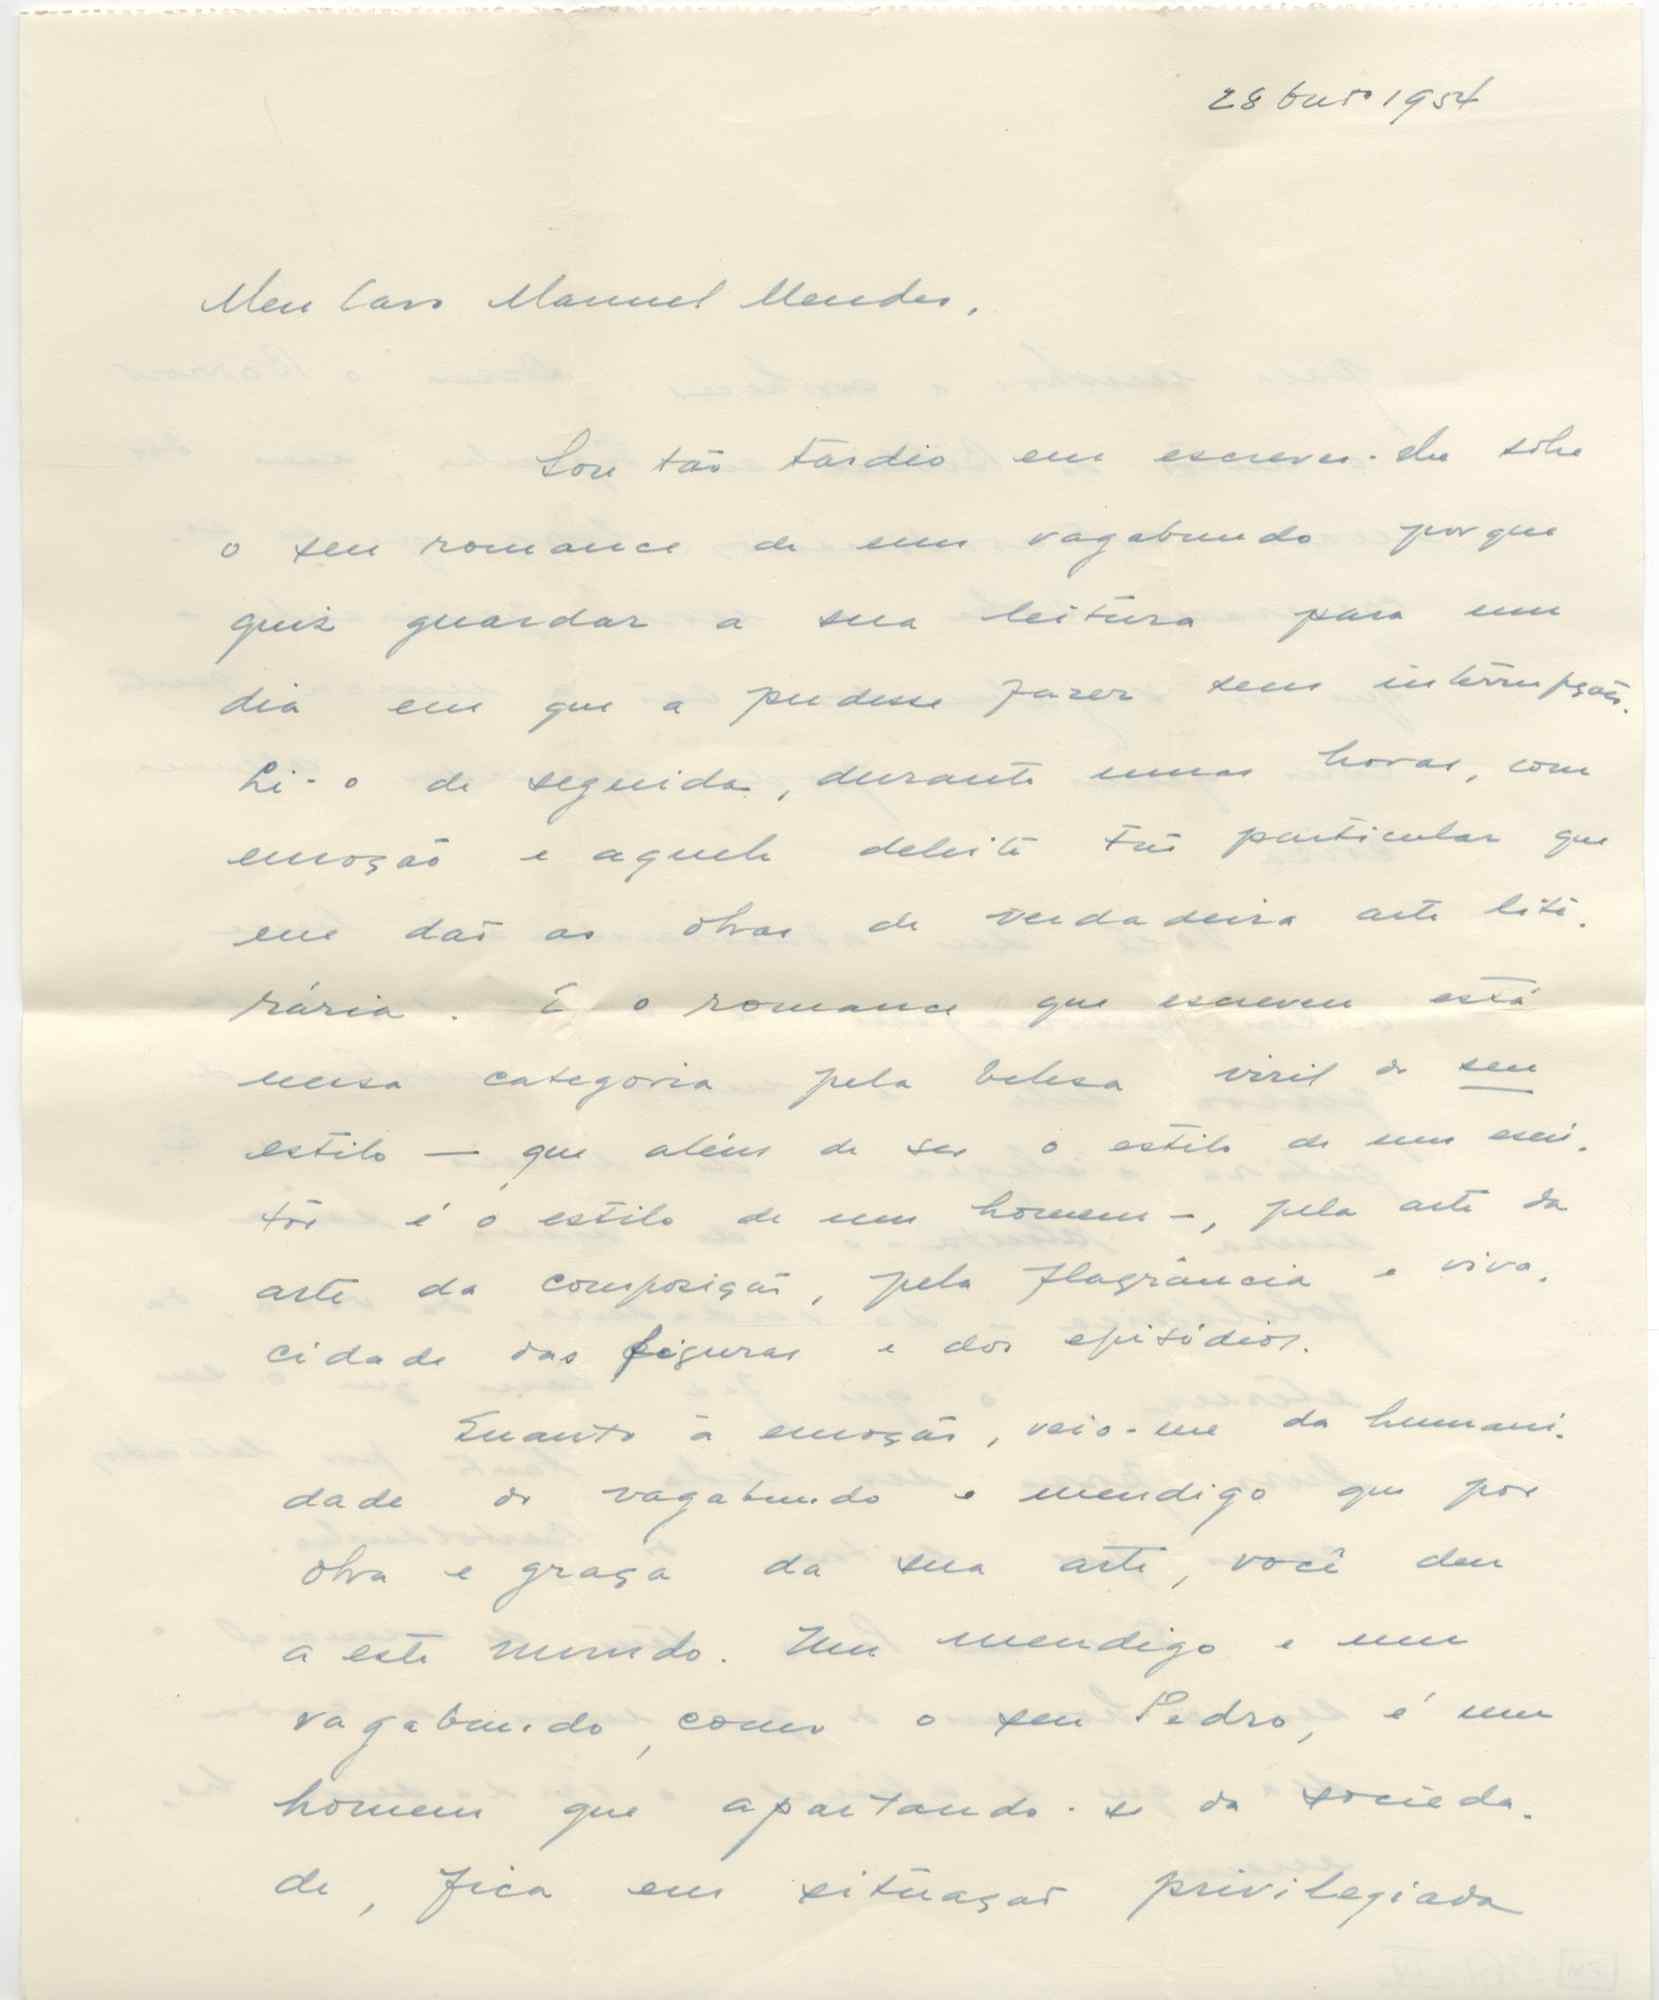 28 Outº 1954
Meu Caro Manuel Mendes,
Sou tão tardio em escrever-lhe sôbre
o seu romance de um vagabundo porque
quiz guardar a sua leitura para um
dia em que a pudesse fazer sem interrupção.
Li-o de seguida, durante umas horas, com
emoção e aquele deleite tão particular que
me dão as obras de verdadeira arte lite-
rária. E o romance que escreveu está
nessa categoria pela belesa viril do seu
estilo — que além de ser o estilo de um escri-
tor é o estilo de um homem —, pela arte da
arte da composição, pela flagrância e viva-
cidade das figuras e dos episódios.
Quanto à emoção, veio-me da humani-
dade do vagabundo e mendigo que por
obra e graça da sua arte, você deu
a este mundo. Um mendigo e um
vagabundo, como o seu Pedro, é um
homem que apartando-se da socieda-
de, fica em situação privilegiada